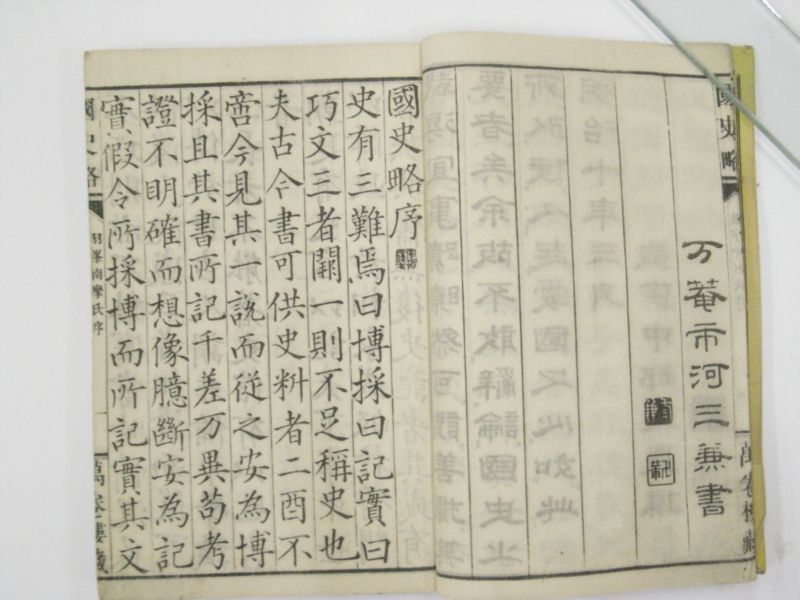 國史略
萬卷樓藏
万菴市河三兼書
國史略序
史有三難焉曰博採曰記實曰
巧文三者闕一則不足稱史也
夫古今書可供史料者二酉不
啻今見其一說而從之安為博
採且其書所記千差万異苟考
證不明確而想像臆斷安為記
實假令所採博而所記實其文
國史略
羽峯南摩氏序
萬卷樓藏